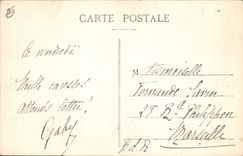 CARTE POSTALE
Ce vendredi
Mille caresses
attends lettre!
Gaby
Mademoiselle
Fernande
25 Bd Philippon
Marseille